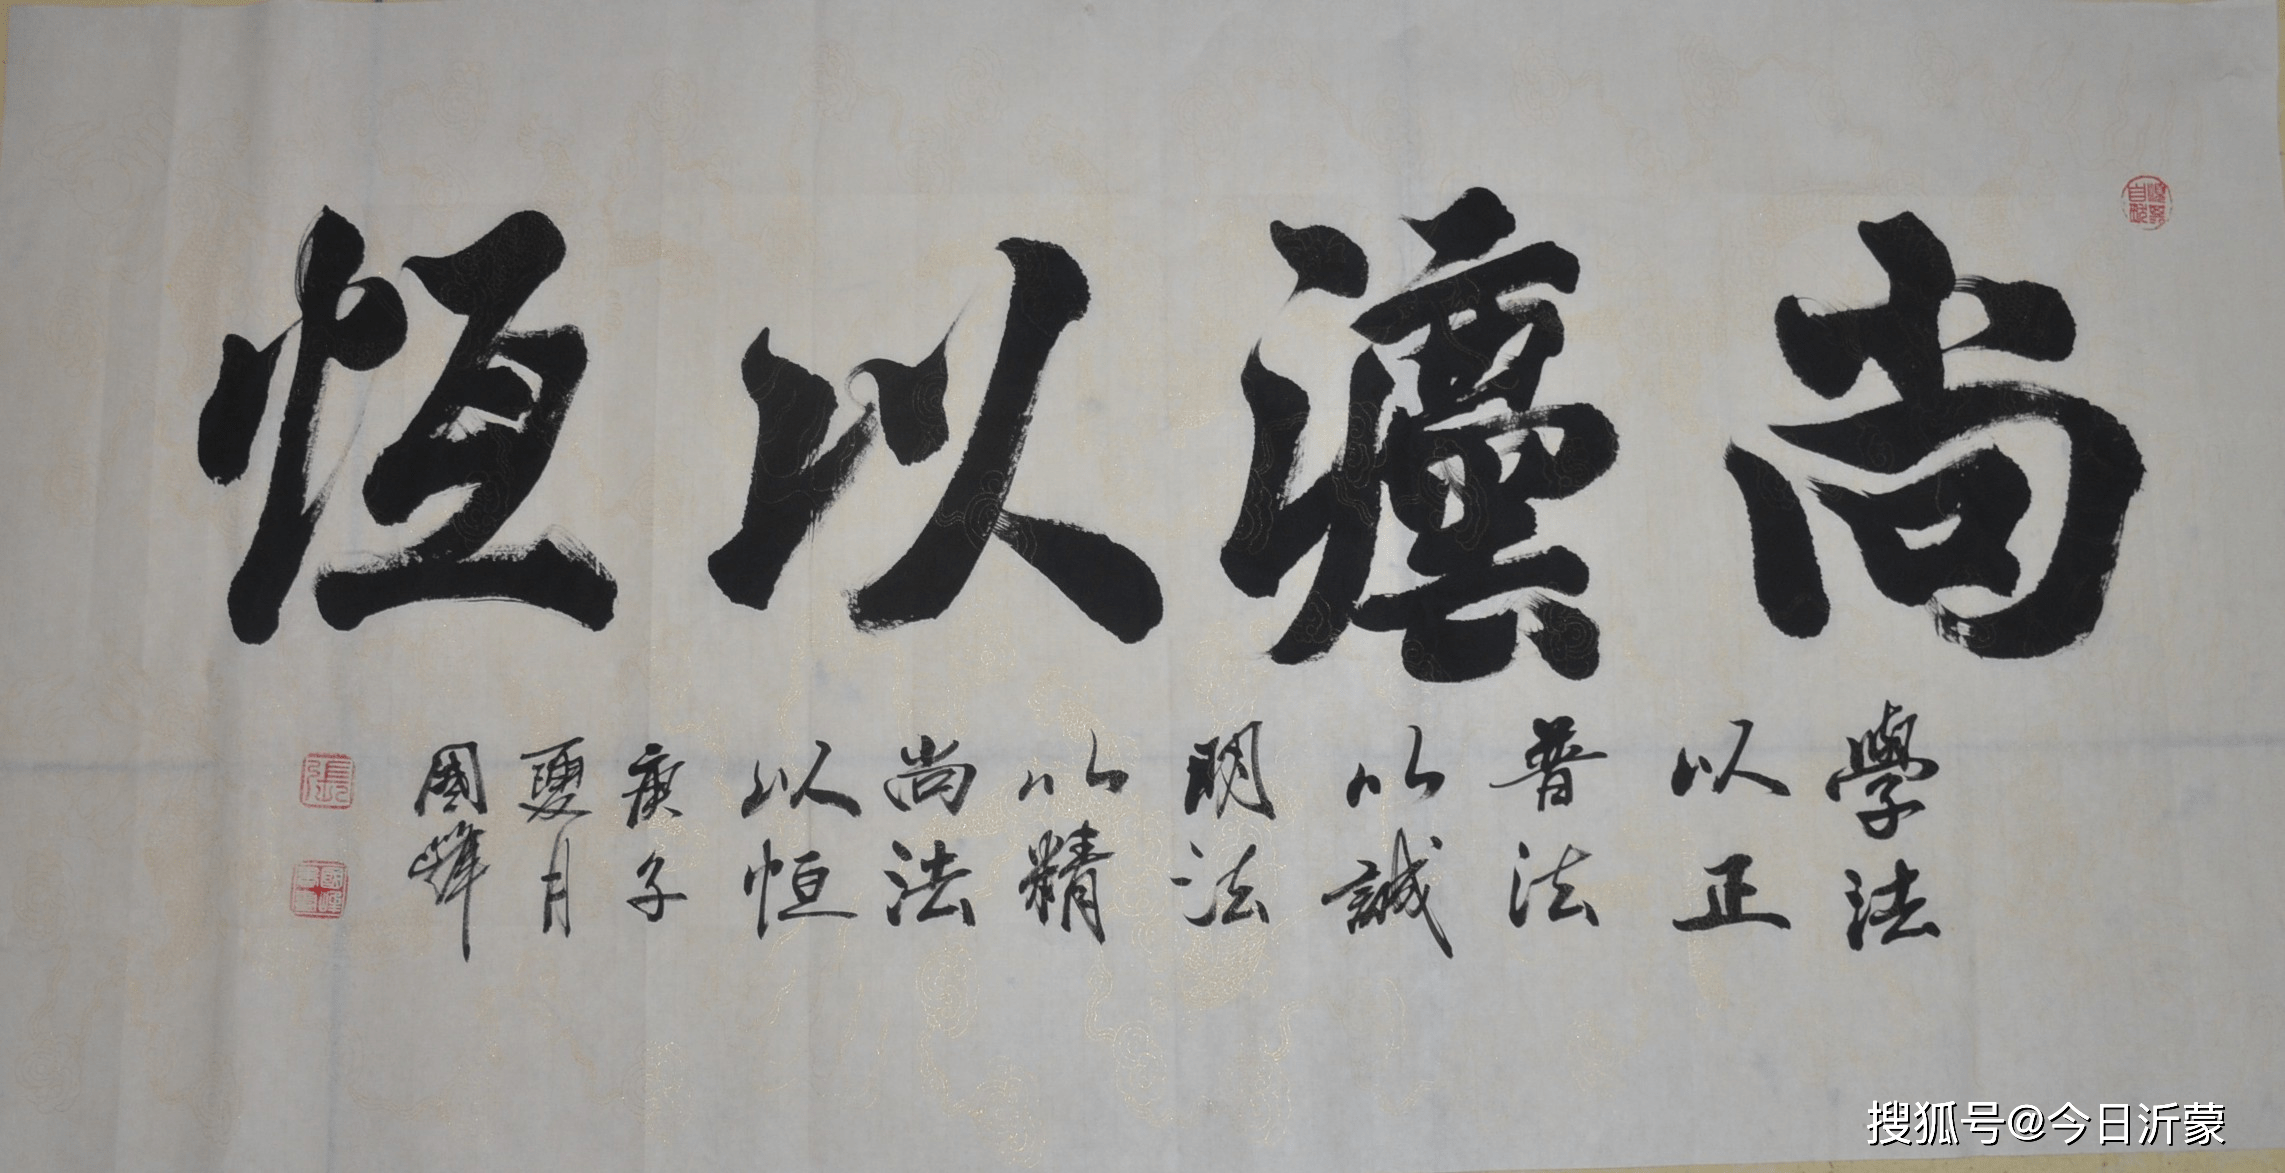 尚灋以恒
學法
以正
普法
以誠
明法
以精
尚法
以恒
庚子
夏月
國輝
張
搜狐号@今日沂蒙